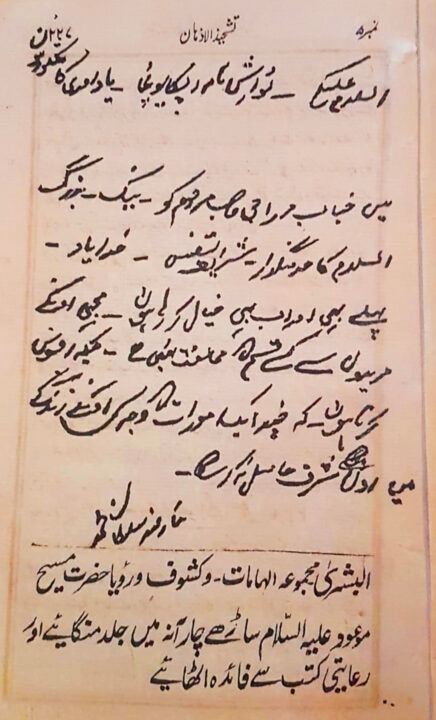 نمبر ۵ تشحیذ الاذہان
السلام علیکم ۔ نوازش نامہ آپکا پہونچا ۔ یاد آوری کا مشکور ہوں
میں جناب مرزا جی صاحب مرحوم کو ۔ نیک ۔ بزرگ
اسلام کا خدمتگذار ۔ شریف النفس ۔ خدا یاد ۔
پہلے بھی اور اب بھی خیال کر رہا ہوں ۔ مجھے اونکے
مریدوں سے کسی قسم کی مخالفت نہیں ہے ۔ بلکہ افسوس
کرتا ہوں ۔ کہ چند ایک امورات کی وجہ سے اونکی زندگی
میں اونکا شرف حاصل نہ کر سکا ۔
نیازمند سلطان محمد
البشریٰ مجموعہ الہامات ۔ وکشوف ورؤیا حضرت مسیح
موعود علیہ السّلام ساڑھے چار آنہ میں جلد منگائیے اور
رعایتی کتب سے فائدہ اٹھائیے